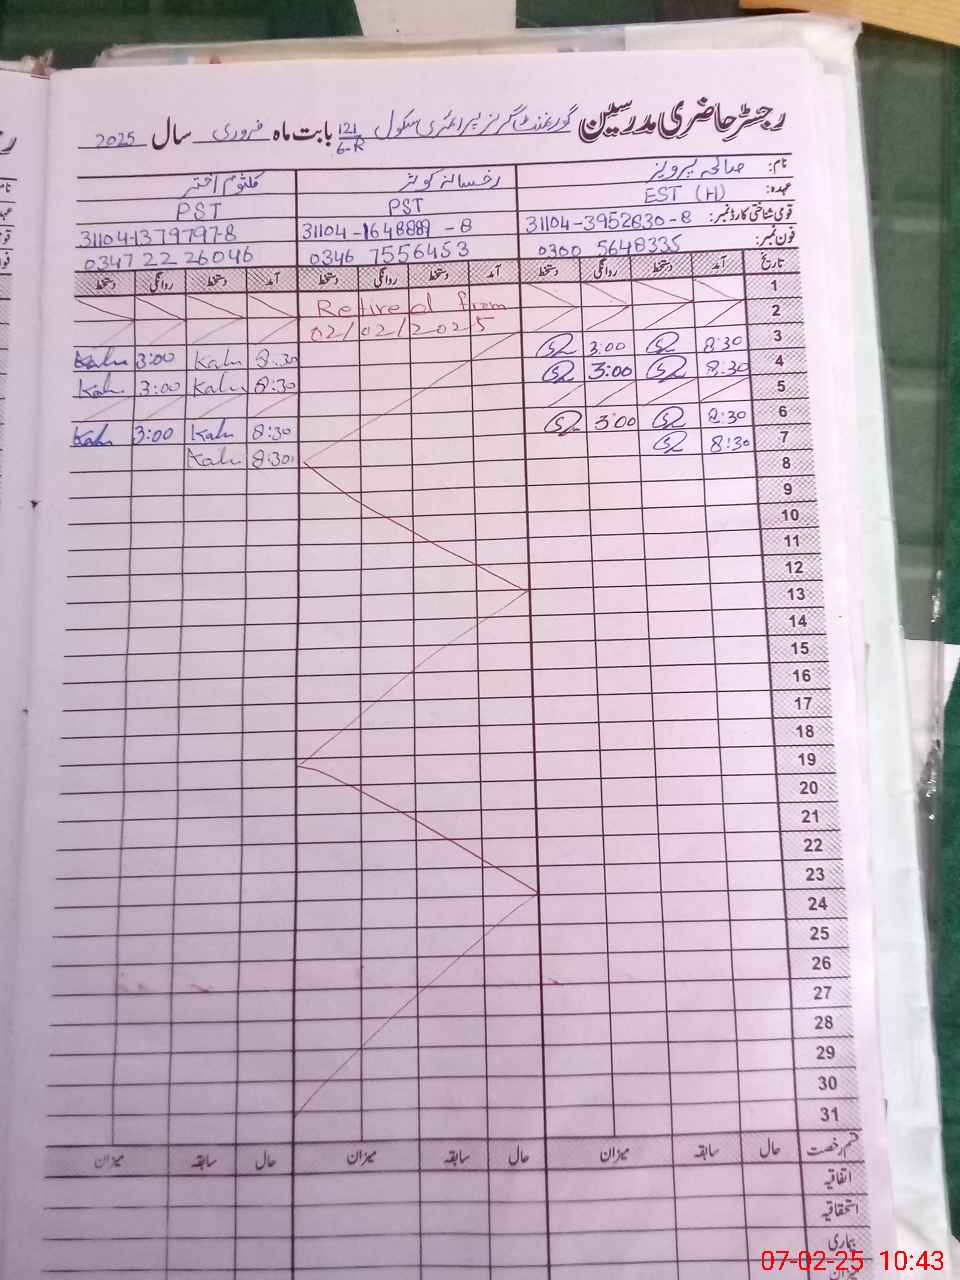 رجسٹر حاضری مدرسین گورنمنٹ گرلز پرائمری سکول 121/6-R بابت ماہ فروری سال 2025
نام: صالحہ پرویز رخسانہ کوثر کلثوم اختر
عہدہ: EST (H) PST PST
قومی شناختی کارڈ نمبر: 31104-3952830-8 31104-1648889-8 31104-1379797-8
فون نمبر: 0300 5648335 0346 7556453 0347 22 26046
تاریخ آمد دستخط روانگی دستخط آمد دستخط روانگی دستخط آمد دستخط روانگی دستخط
1 Retired from
2 02/02/2025
3 8:30 3:00 8:30 Kalu 3:00 Kalu
4 8:30 3:00 8:30 Kalu 3:00 Kalu
5
6 8:30 3:00 8:30 Kalu 3:00 Kalu
7 8:30 8:30 Kalu
8
9
10
11
12
13
14
15
16
17
18
19
20
21
22
23
24
25
26
27
28
29
30
31
قسم رخصت حال سابقہ میزان حال سابقہ میزان حال سابقہ میزان
اتفاقیہ
استحقاقیہ
بیماری
میزان
07-02-25 10:43